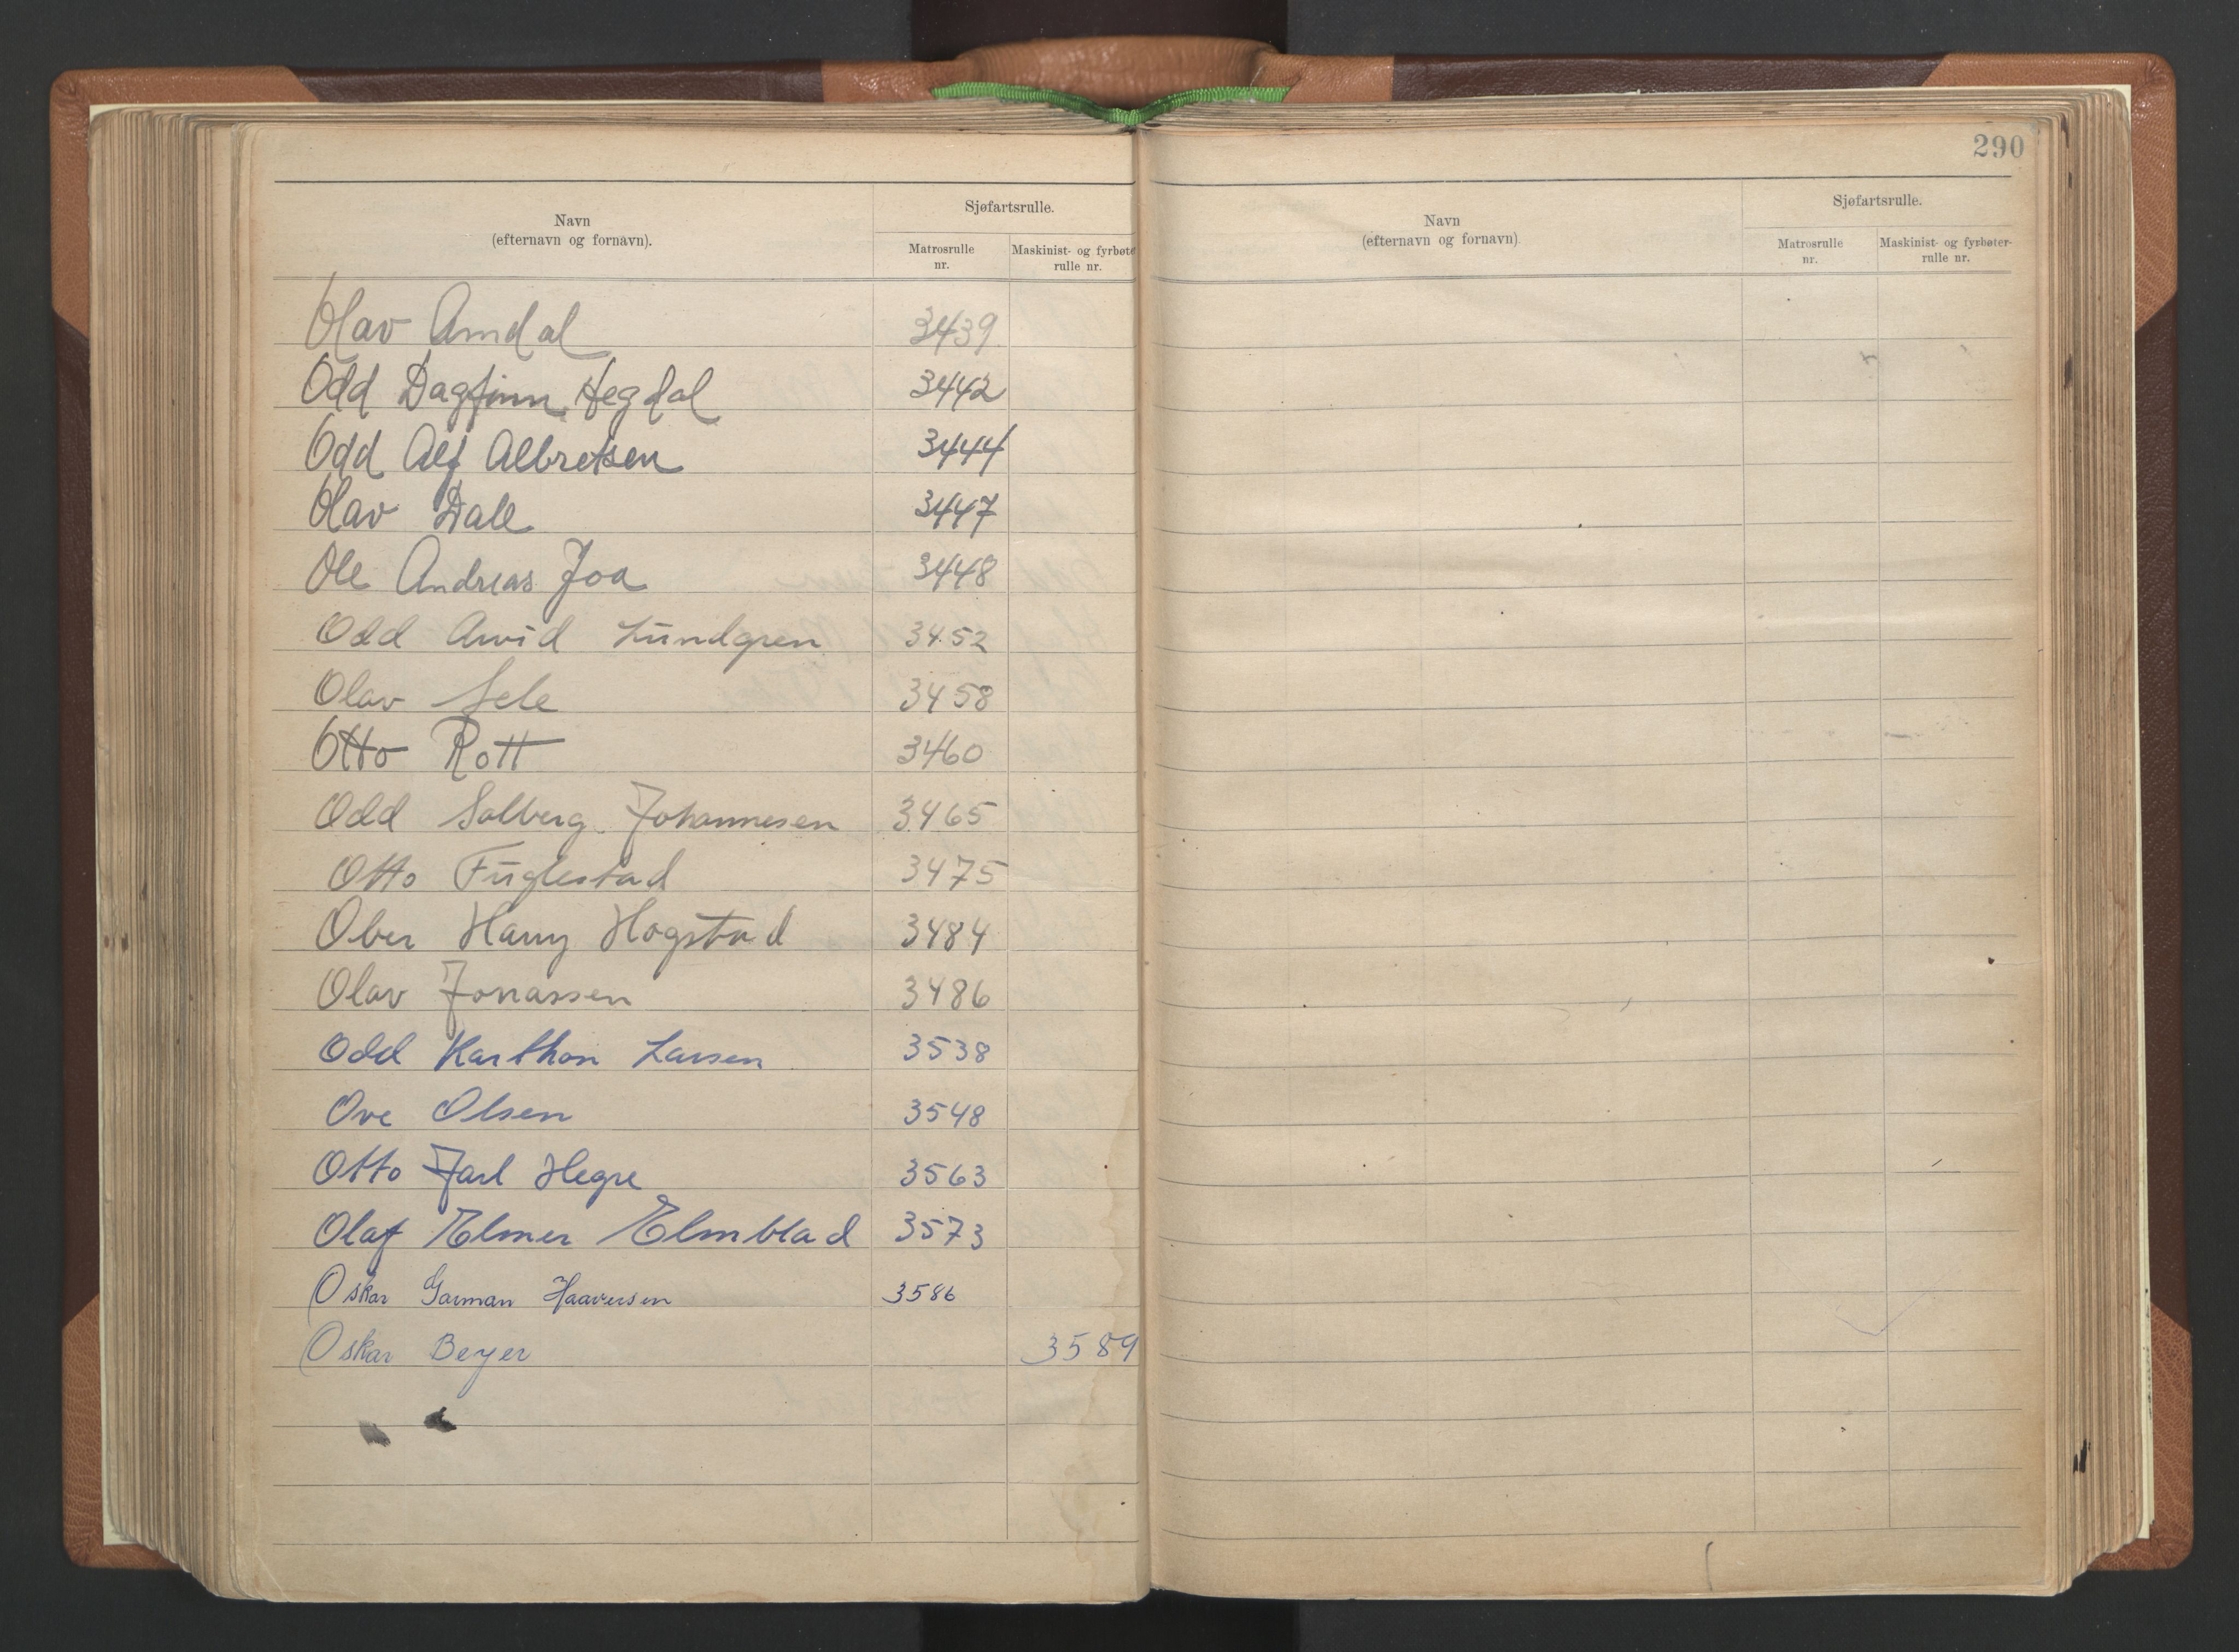 Navn
(efternavn og fornavn).
Sjøfartsrulle.
Matrosrulle nr.
Maskinist- og fyrbøter rulle nr.
Olav Amdal 3439
Odd Dagfinn Hegdal 3442
Odd Alf Albretsen 3444
Olav Dale 3447
Ole Andreas Joa 3448
Odd Arvid Lundgren 3452
Olav Sele 3458
Otto Rott 3460
Odd Solberg Johannesen 3465
Otto Fuglestad 3475
Harry Hogstad 3484
Olav Jonassen 3486
Odd Karthon Larsen 3538
Ove Olsen 3548
Otto Jarl Hegre 3563
Olaf Elmer Elmblad 3573
Oskar Garman Haaversen 3586
Oskar Beyer 3589
290
Navn
(efternavn og fornavn)
Sjøfartsrulle.
Matrosrulle nr.
Maskinist- og fyrbøter- rulle nr.